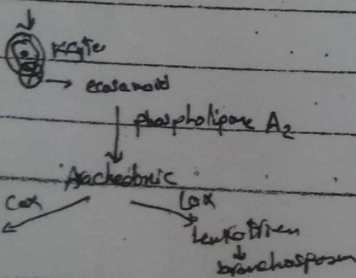 → ecosanoid
phospholipase A2
Aracheodonic
Cox Lox
leukotrien
↓
bronchospasm